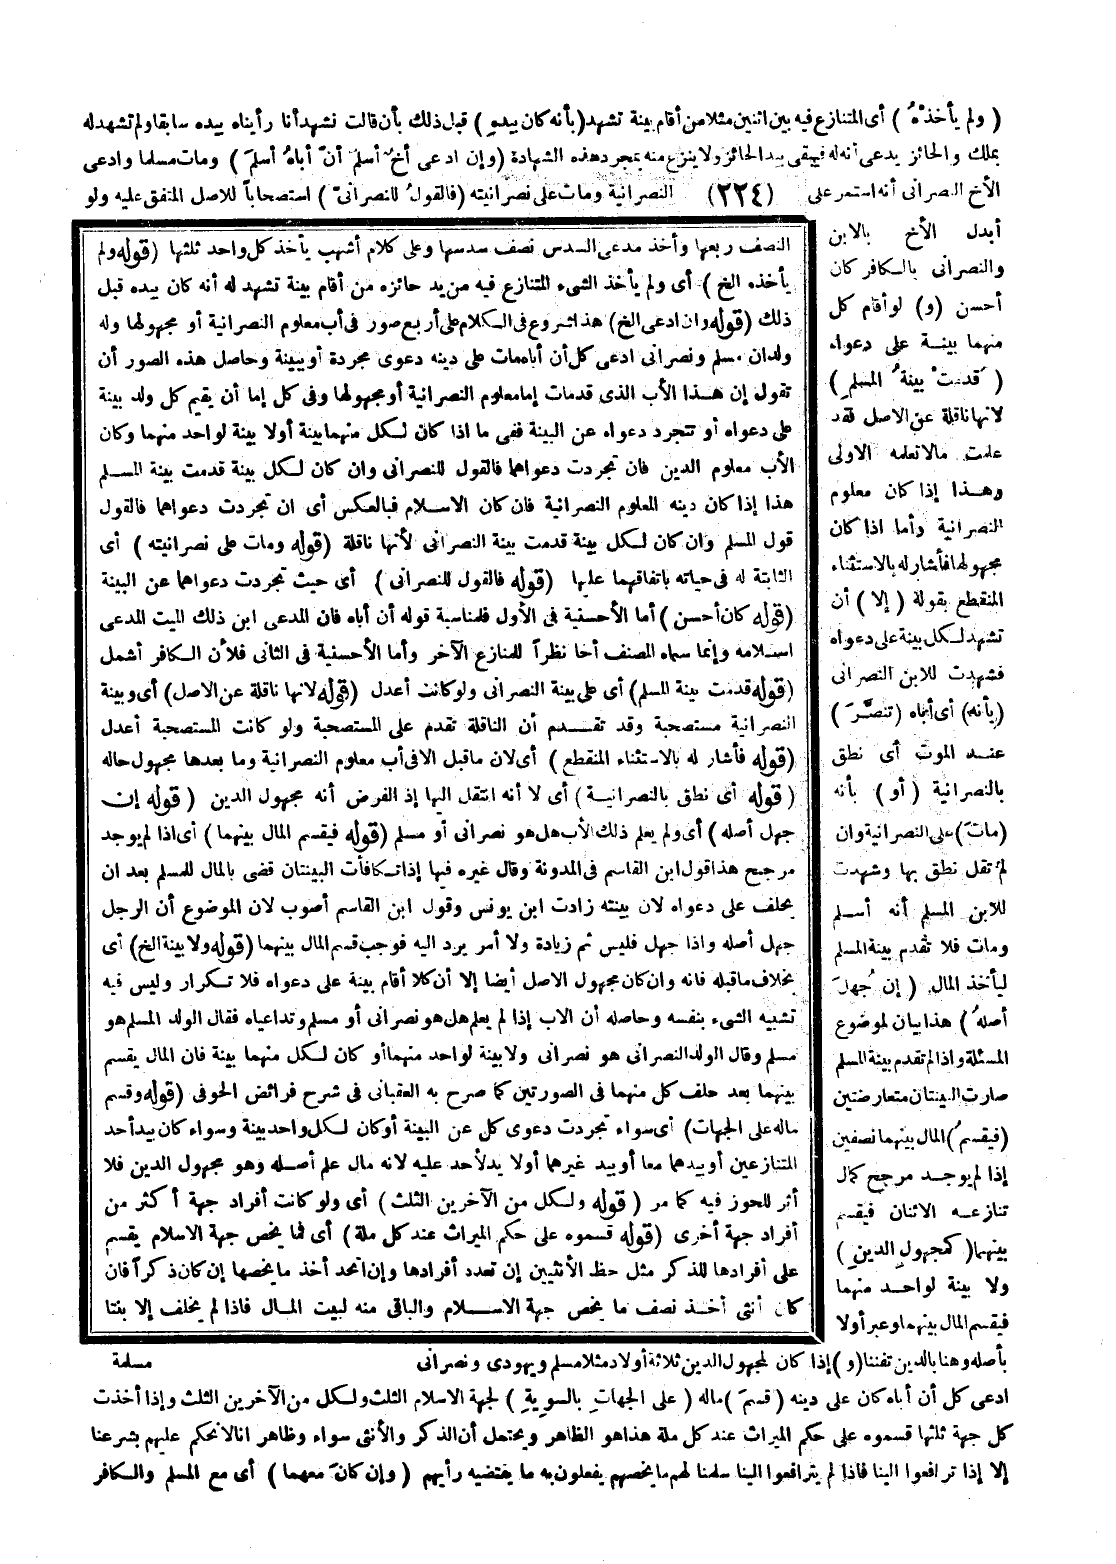 ( ولم يأخذْهُ ) أى المتنازع فيه بين اثنين مثلا من أقام بينة تشهد (بأنه كان بيدهِ ) قبل ذلك بأن قالت نشهد أنا رأيناه بيده سابقا ولم تشهد له
بملك والحائز يدعى أنه له فيبقى بيد الحائز ولا ينزع منه بمجرد هذه الشهادة (وإن ادعى أخٌ أسلمَ أنّ أباهُ أسلمَ ) ومات مسلما وادعى
الأخ النصرانى أنه استمر على (٢٢٤) النصرانية ومات على نصرانيته (فالقولُ للنصرانىّ ) استصحاباً للاصل المتفق عليه ولو
أبدل الأخ بالابن
والنصرانى بالكافر كان
أحسن (و) لو أقام كل
منهما بينة على دعواه
( قدمتْ بينةُ المسلمِ )
لانها ناقلة عن الاصل فقد
علمت مالا تعلمه الاولى
وهذا إذا كان معلوم
النصرانية وأما اذا كان
مجهولها فأشار له بالاستثناء
المنقطع بقوله ( إلا ) أن
تشهد لكل بينة على دعواه
فشهدت للابن النصرانى
(بأنه) أى أباه (تنصَّرَ )
عند الموت أى نطق
بالنصرانية (أو ) بأنه
(ماتَ) على النصرانية وان
لم تقل نطق بها وشهدت
للابن المسلم أنه أسلم
ومات فلا تقدم بينة المسلم
ليأخذ المال ( إن جُهلَ
أصلهُ ) هذا بيان لموضوع
المسئلة واذا لم تقدم بينة المسلم
صارت البينتان متعارضتين
(فيقسمُ) المال بينهما نصفين
إذا لم يوجد مرجح كمال
تنازعه الاثنان فيقسم
بينهما( كمجهولِ الدينِ )
ولا بينة لواحد منهما
فيقسم المال بينهما وعبر أولا
بأصله وهنا بالدين تفننا (و) إذا كان لمجهول الدين ثلاثة أولاد مثلا مسلم ويهودى ونصرانى
ادعى كل أن أباه كان على دينه ( قسمَ ) ماله ( على الجهاتِ بالسويةِ ) لجهة الاسلام الثلث ولكل من الآخرين الثلث وإذا أخذت
كل جهة ثلثها قسموه على حكم الميراث عند كل ملة هذا هو الظاهر ويحتمل أن الذكر والأنثى سواء وظاهر انالا نحكم عليهم بشرعنا
إلا إذا ترافعوا الينا فاذا لم يترافعوا الينا سلمنا لهم ما يخصهم يفعلون به ما يقتضيه رأيهم ( وإن كانَ معهما ) أى مع المسلم والكافر
النصف ربعها وأخذ مدعى السدس نصف سدسها وعلى كلام أشهب يأخذ كل واحد ثلثها (قوله ولم
يأخذه الخ ) أى ولم يأخذ الشىء المتنازع فيه من يد حائزه من أقام بينة تشهد له أنه كان بيده قبل
ذلك (قوله وان ادعى الخ) هذا شروع فى الكلام على أربع صور فى أب معلوم النصرانية أو مجهولها وله
ولدان مسلم ونصرانى ادعى كل أن أباه مات على دينه دعوى مجردة أو ببينة وحاصل هذه الصور أن
تقول إن هذا الأب الذى قد مات إما معلوم النصرانية أو مجهولها وفى كل إما أن يقيم كل ولد بينة
على دعواه أو تتجرد دعواه عن البينة ففى ما اذا كان لكل منهما بينة أولا بينة لواحد منهما وكان
الأب معلوم الدين فان تجردت دعواهما فالقول للنصرانى وان كان لكل بينة قدمت بينة المسلم
هذا إذا كان دينه المعلوم النصرانية فان كان الاسلام فبالعكس أى ان تجردت دعواهما فالقول
قول المسلم وان كان لكل بينة قدمت بينة النصرانى لأنها ناقلة (قوله ومات على نصرانيته ) أى
الثابتة له فى حياته باتفاقهما عليها (قوله فالقول للنصرانى ) أى حيث تجردت دعواهما عن البينة
(قوله كان أحسن ) أما الأحسنية فى الأول فلمناسبة قوله أن أباه فان المدعى ابن ذلك الميت المدعى
اسلامه وإنما سماه المصنف أخا نظراً للمنازع الآخر وأما الأحسنية فى الثانى فلأن الكافر أشمل
(قوله قدمت بينة المسلم) أى على بينة النصرانى ولو كانت أعدل (قوله لانها ناقلة عن الاصل) أى وبينة
النصرانية مستصحبة وقد تقدم أن الناقلة تقدم على المستصحبة ولو كانت المستصحبة أعدل
(قوله فأشار له بالاستثناء المنقطع ) أى لان ماقبل الا فى أب معلوم النصرانية وما بعدها مجهول حاله
( قوله أى نطق بالنصرانية ) أى لا أنه انتقل اليها إذ الفرض أنه مجهول الدين ( قوله إن
جهل أصله ) أى ولم يعلم ذلك الأب هل هو نصرانى أو مسلم (قوله فيقسم المال بينهما ) أى اذا لم يوجد
مرجح هذا قول ابن القاسم فى المدونة وقال غيره فيها إذا تكافأت البينتان قضى بالمال للمسلم بعد ان
يحلف على دعواه لان بينته زادت ابن يونس وقول ابن القاسم أصوب لان الموضوع أن الرجل
جهل أصله واذا جهل فليس ثم زيادة ولا أمر يرد اليه فوجب قسم المال بينهما (قوله ولا بينة الخ) أى
بخلاف ماقبله فانه وان كان مجهول الاصل أيضا إلا أن كلا أقام بينة على دعواه فلا تكرار وليس فيه
تشبيه الشىء بنفسه وحاصله أن الاب إذا لم يعلم هل هو نصرانى أو مسلم وتداعياه فقال الولد المسلم هو
مسلم وقال الولد النصرانى هو نصرانى ولا بينة لواحد منهما أو كان لكل منهما بينة فان المال يقسم
بينهما بعد حلف كل منهما فى الصورتين كما صرح به العقبانى فى شرح فرائض الحوفى (قوله وقسم
ماله على الجهات) أى سواء تجردت دعوى كل عن البينة أو كان لكل واحد بينة وسواء كان بيد أحد
المتنازعين أو بيدهما معا أو بيد غيرهما أولا يد لأحد عليه لانه مال علم أصله وهو مجهول الدين فلا
أثر للحوز فيه كما مر ( قوله ولكل من الآخرين الثلث ) أى ولو كانت أفراد جهة أكثر من
أفراد جهة أخرى (قوله قسموه على حكم الميراث عند كل ملة ) أى فما يخص جهة الاسلام يقسم
على أفرادها للذكر مثل حظ الأنثيين إن تعدد أفرادها وإن اتحد أخذ ما يخصها إن كان ذكراً فان
كان أنثى أخذ نصف ما يخص جهة الاسلام والباقى منه لبيت المال فاذا لم يخلف إلا بنتا
مسلمة